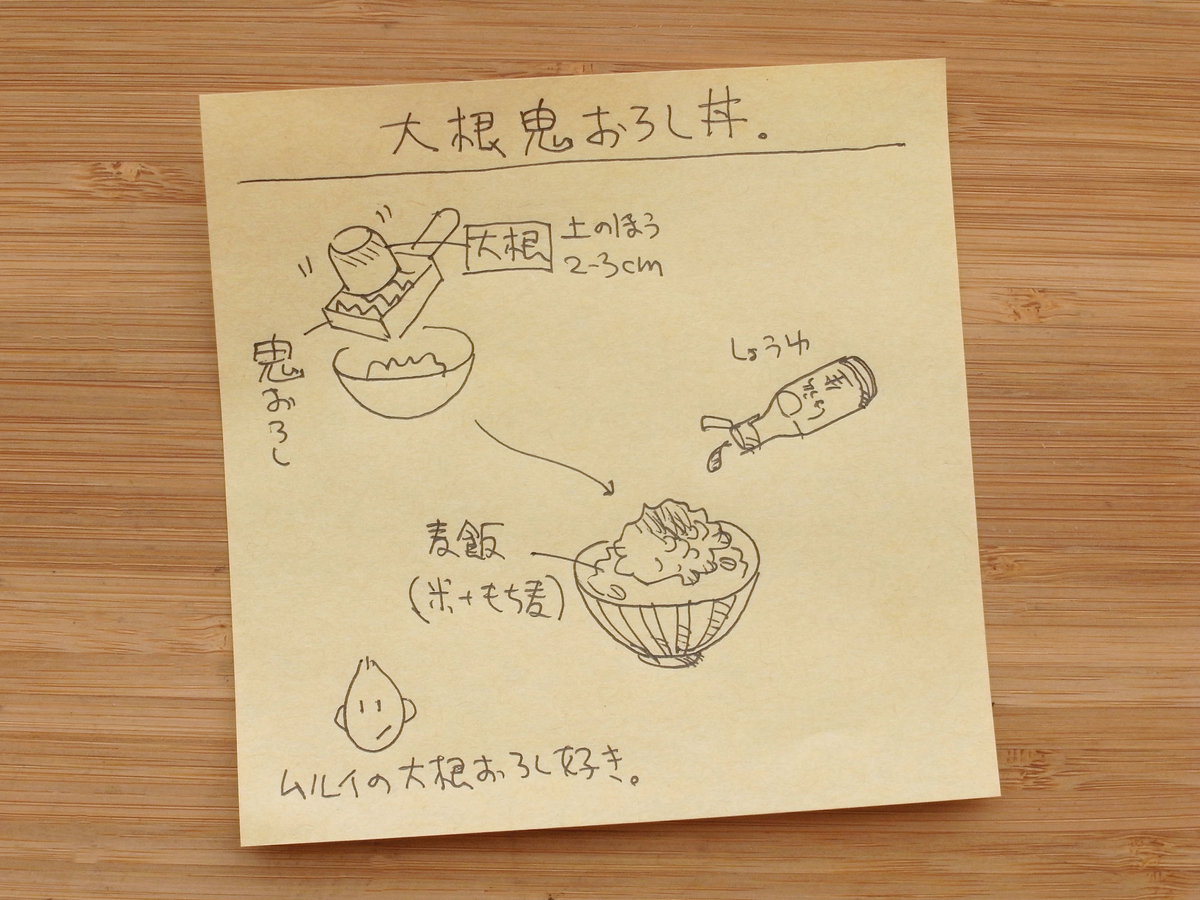 大根鬼おろし丼。
大根
土のほう
2-3cm
鬼おろし
しょうゆ
麦飯
(米+もち麦)
ムルイの大根おろし好き。